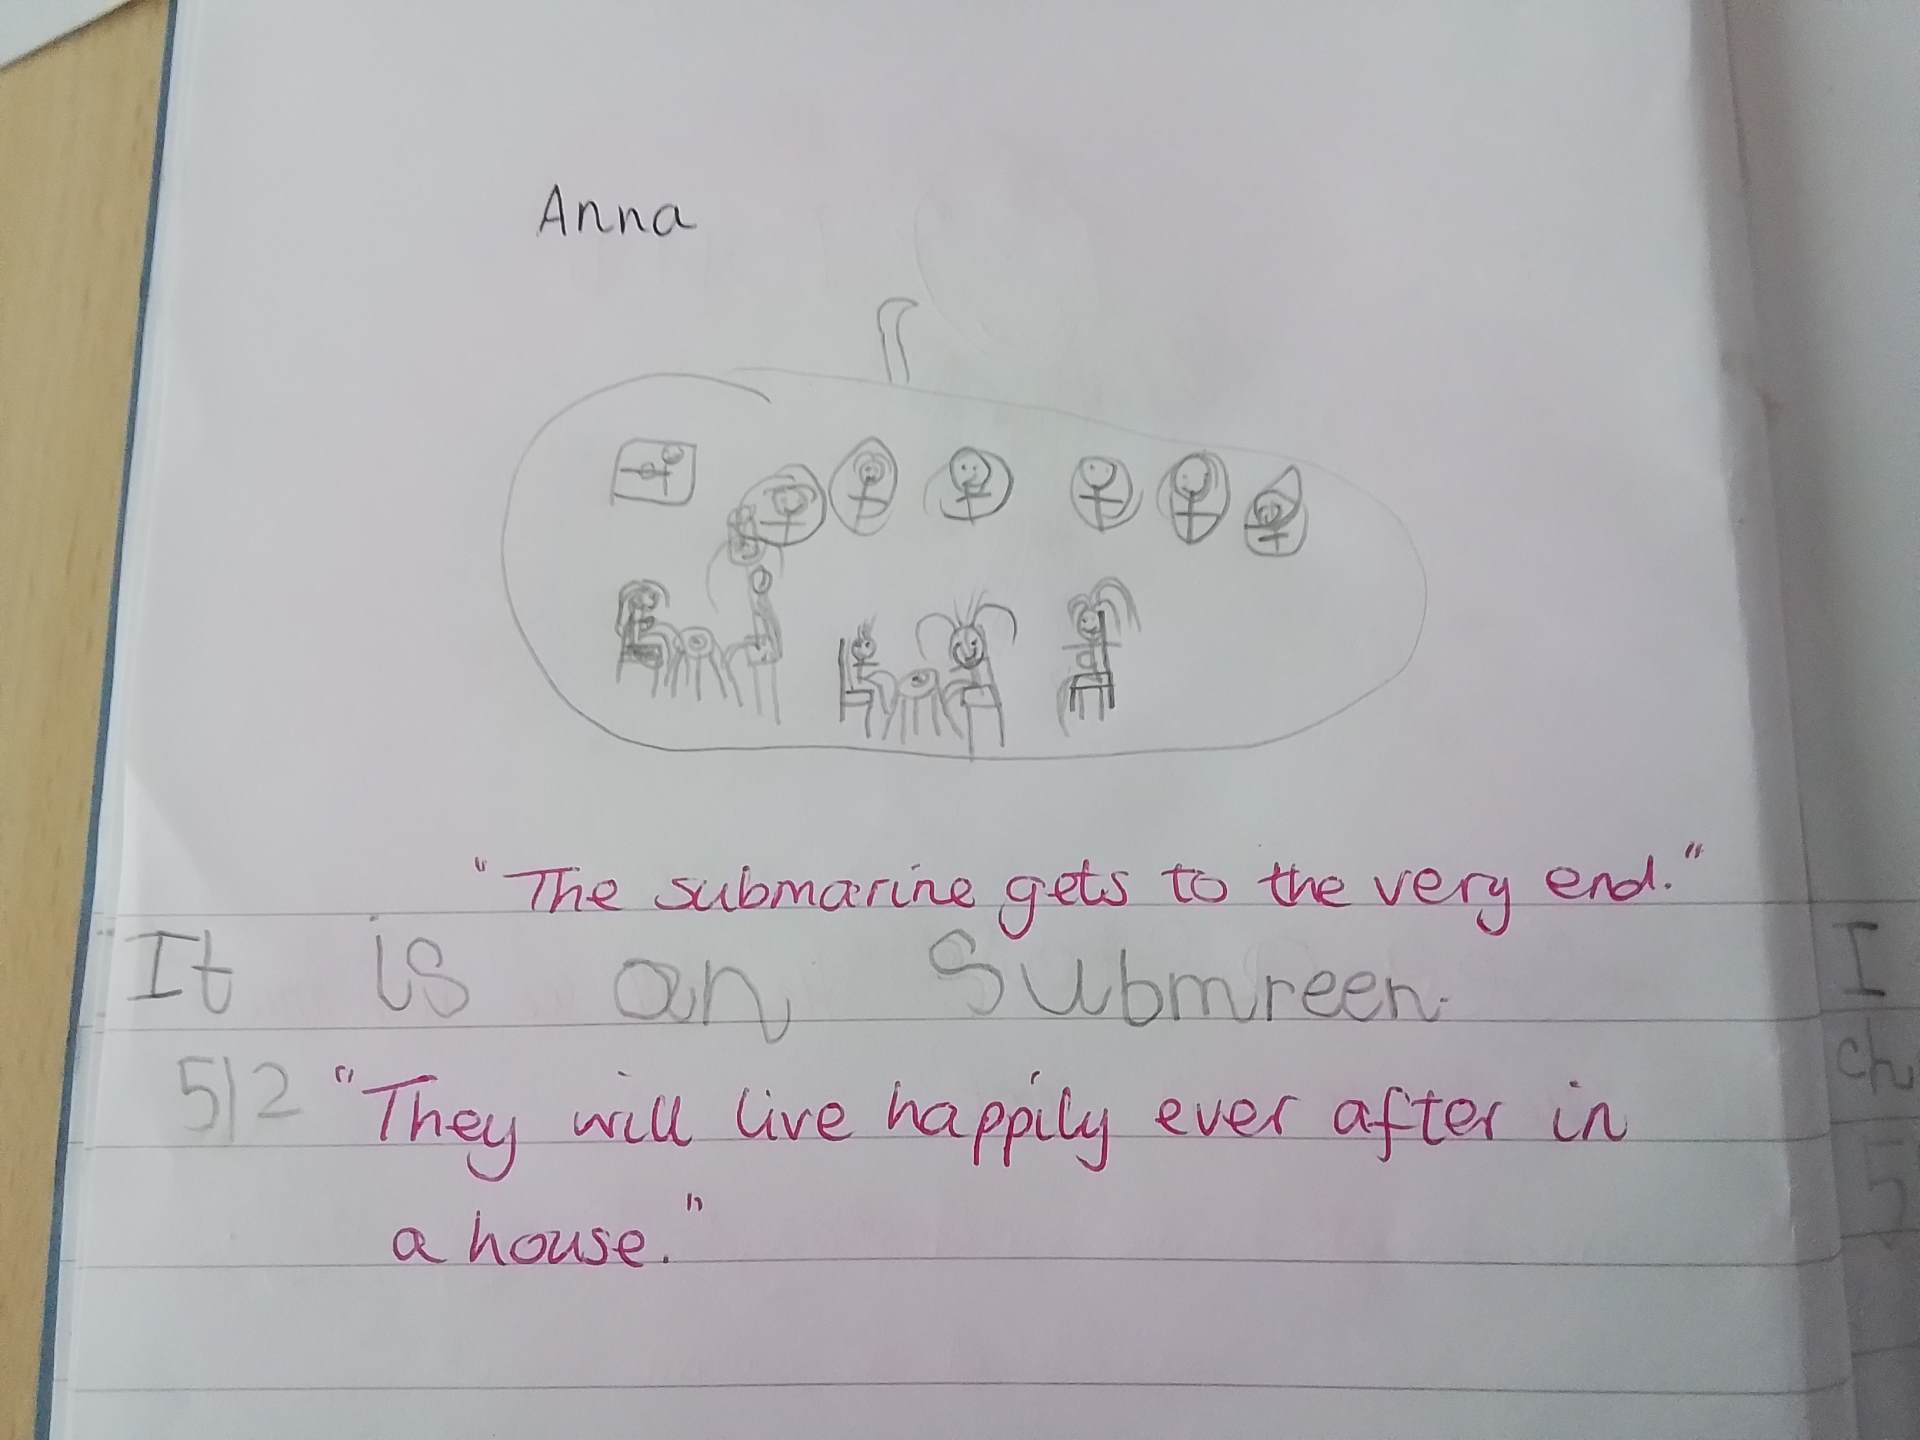 Anna
"The submarine gets to the very end."
It is an Submreen.
512 "They will live happily ever after in
a house."
I
ch
5